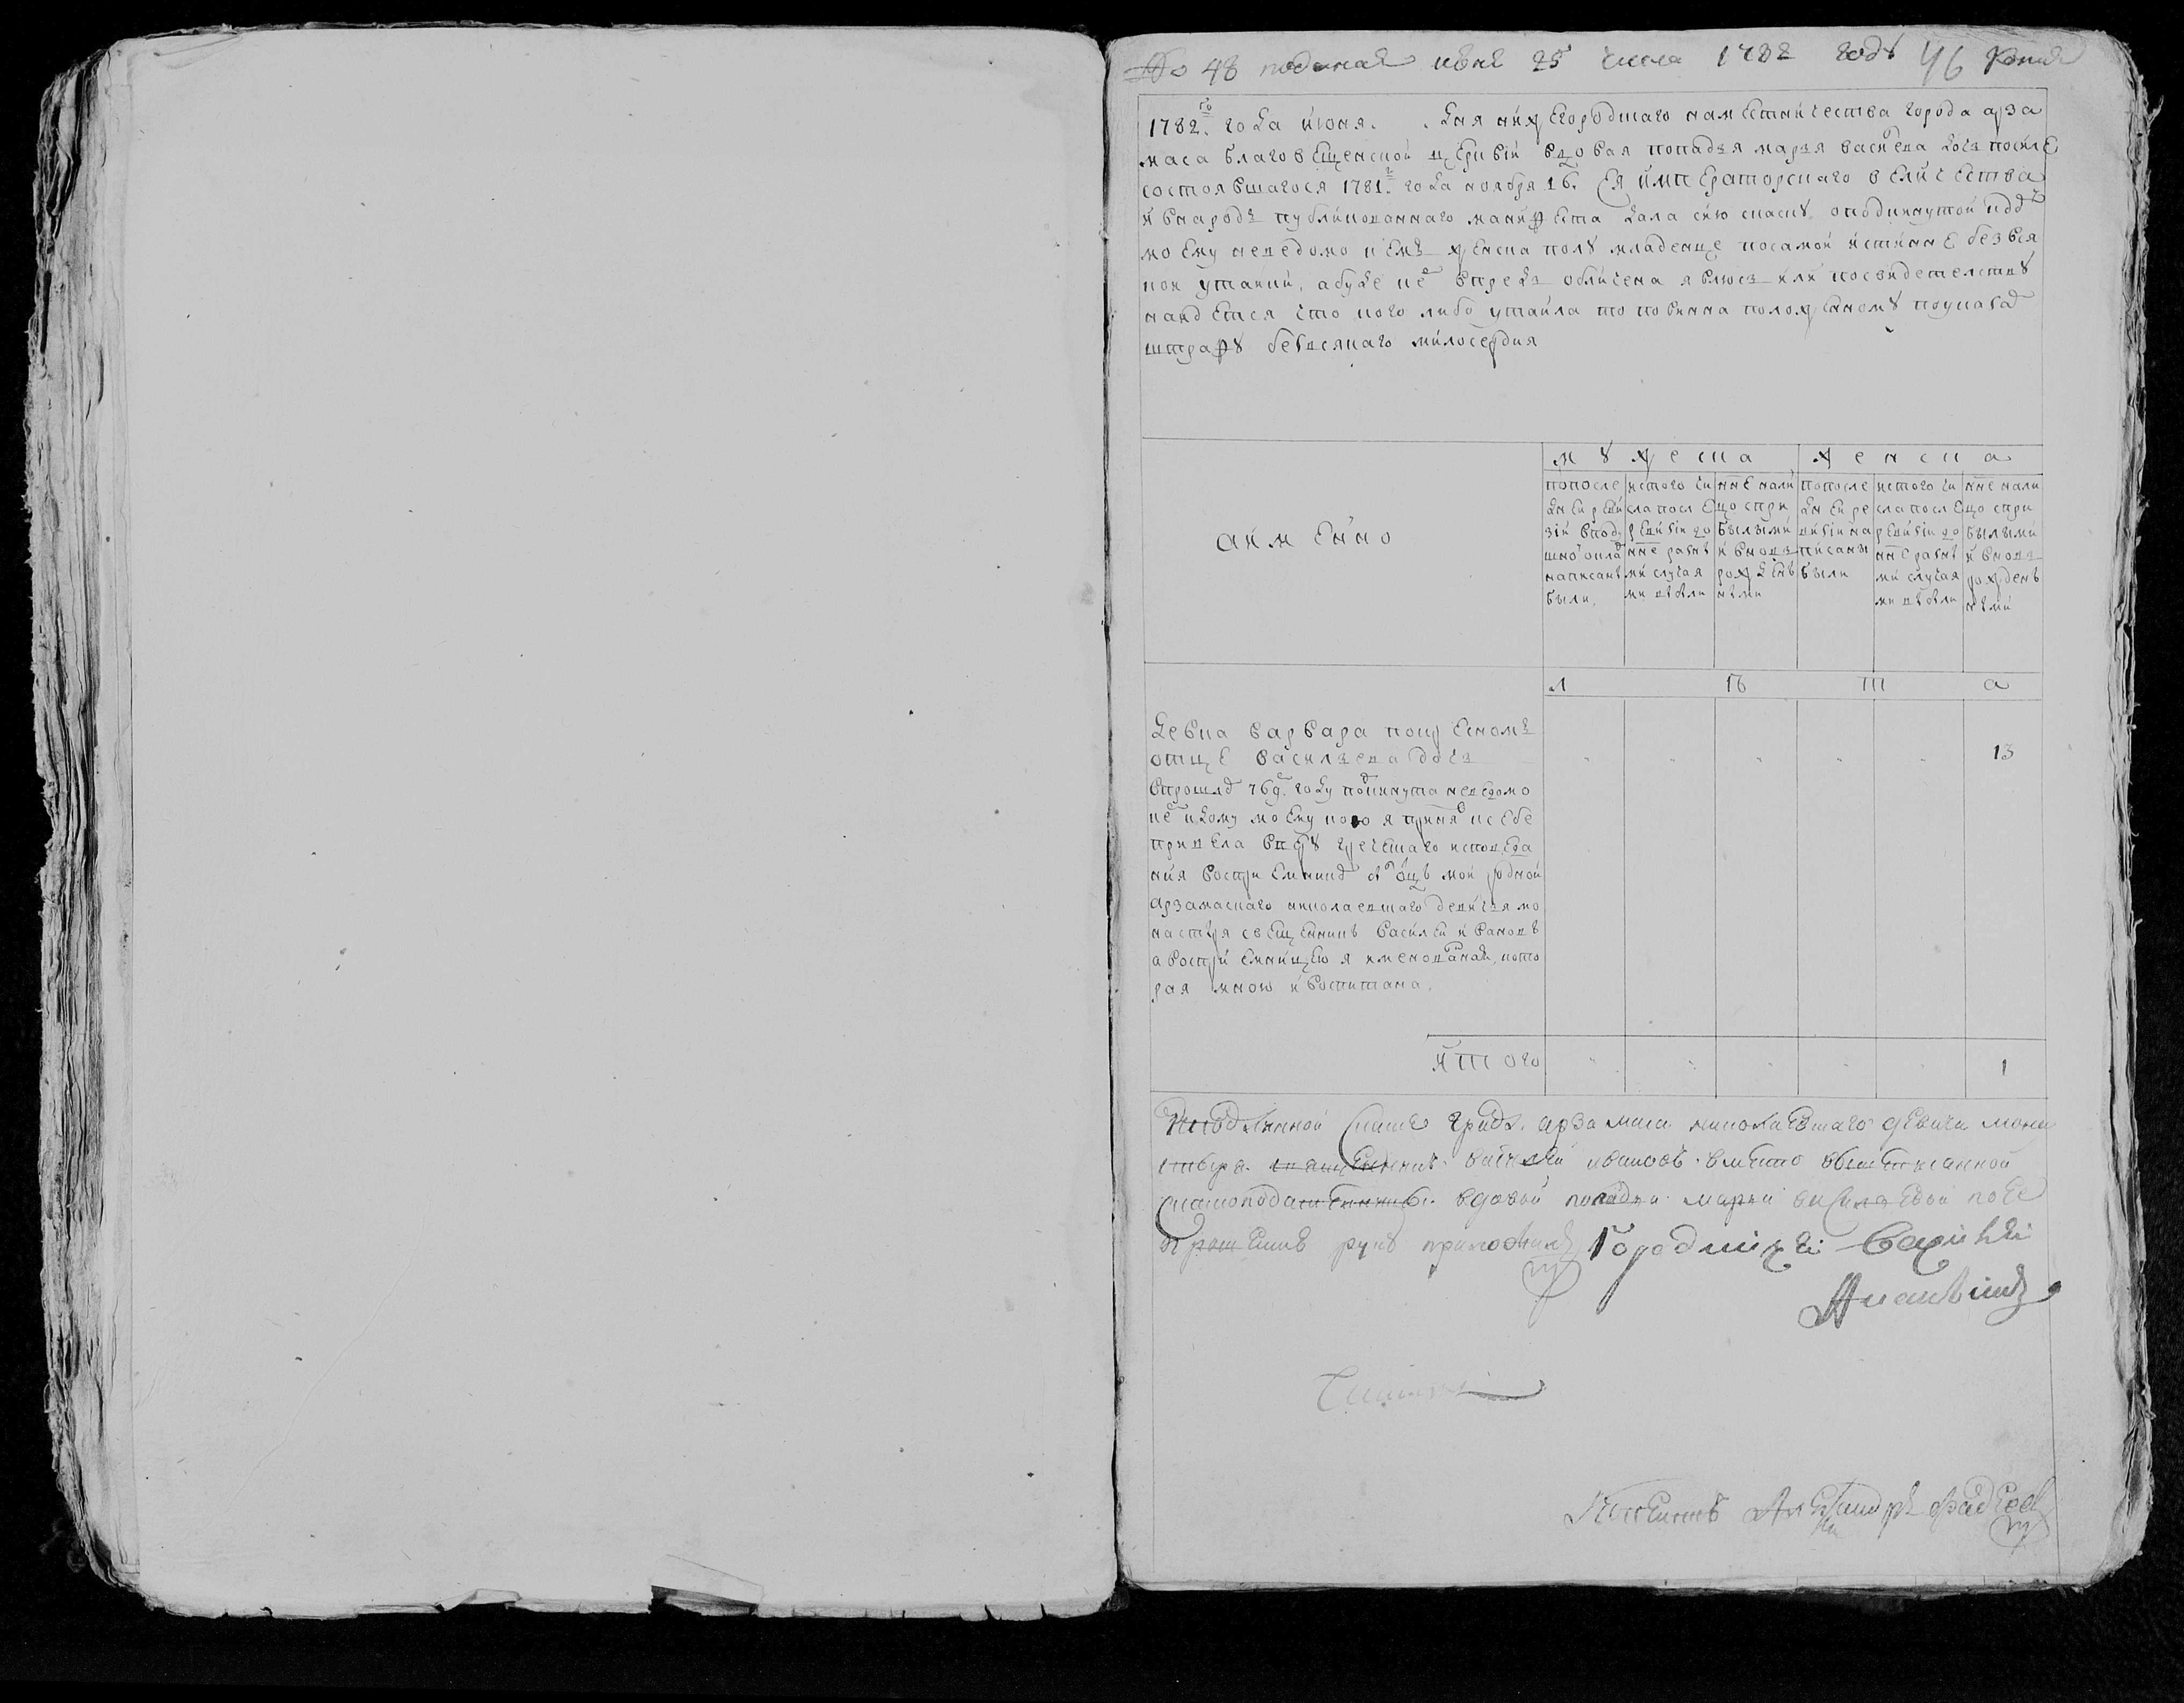 № 48 поданая июня 25 числа 1782 году 46 копия
1782го года июня. дня нижегородскаго наместничества города арза
маса благовещенской церкви вдовая попадья марья васильева дочь после
состоявшагося 1781г. года ноября 16. ея императорскаго величества
и внародъ публикованнаго манифеста дала сию скаску о подкинутой к до
моему неведомо кемъ женска полу младенце по самой истинне без вся
кой утайки, а буде кем впредь обличена явлюсь или по свидетельству
найдется что кого либо утаила то повинна положенному по указам
штрафу безвсякаго милосердия
мужеска женска
а имянно
попосле
дней реви
зии в под
ушной оклад
написаны
были,
из того чи
сла после
ревизии до
ныне разны
ми случая
ми выбыли
ныне нали
цо с при
былыми
и вновь
рожден
ными
попосле
дней ре
визии на
писаны
были
из того чи
сла после
ревизии до
ныне разны
ми случая
ми выбыли
ныне нали
цо с при
былыми
и вновь
рожден
ными
л ѣ т а
девка варвара по крестномъ
отце васильева дочь 13
в прошлом 769м году подкинута неведомо
кем к дому моему кою я приняв к себе
привела в веру греческаго исповеда
ния восприемником был отец мой родной
арзамаскаго николаевскаго девичья мо
настыря священник василей иванов
а восприемницею я имянованая, кото
рая мною и воспитана.
итого 1
К подлинной скаске града арзамаса николаевскаго девича мона
стыря священникъ василей ивановъ вместо вдовой
скаскоподательницы вдовой попадьи марьи васильевой по ее
прошению руку приложилъ Городничей Василей
Копеистъ Александръ Фадеев